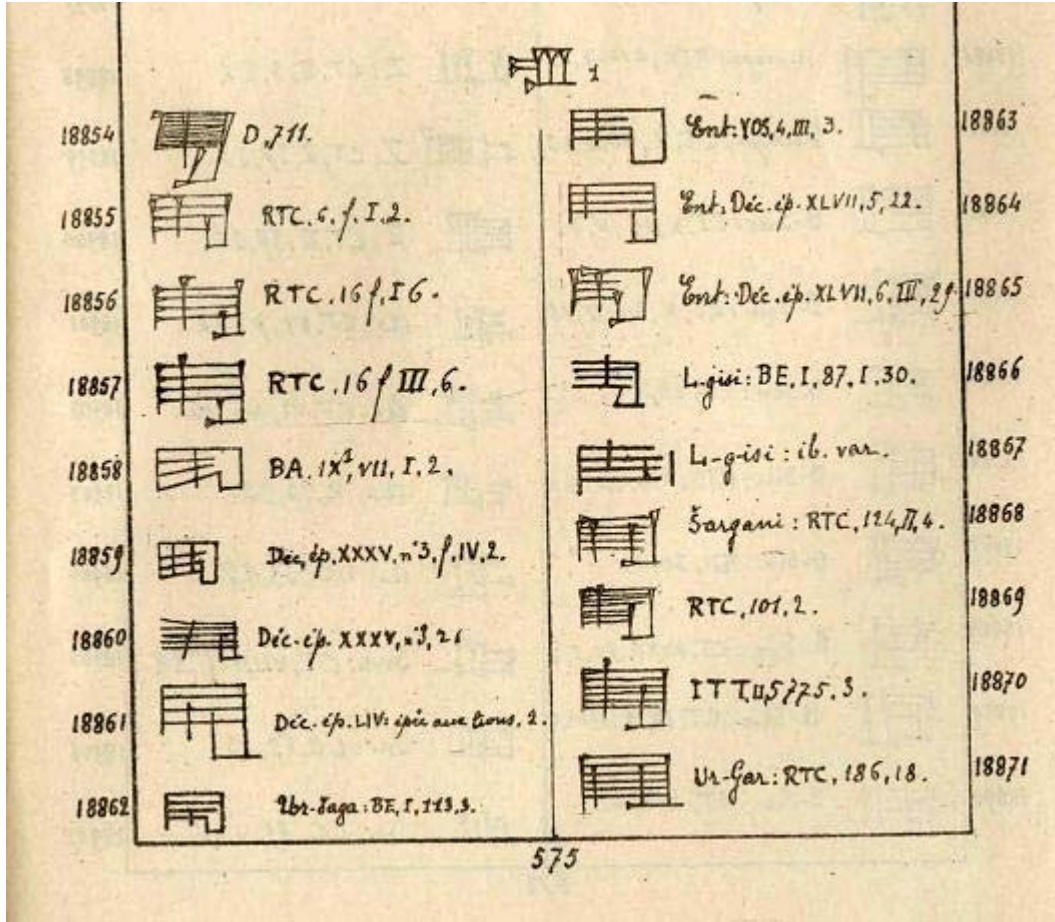 1
18854 D,711.
18855 RTC.6.f.I,2.
18856 RTC.16f,I6.
18857 RTC.16f III,6.
18858 BA.IX¹,VII,I,2.
18859 Déc.ép.XXXV,n°3,f,IV,2.
18860 Déc.ép.XXXV,n°3,21
18861 Déc.ép.LIV: aux lions,2.
18862 BE,I,113,3.
18863 Ent:YOS,4,III,3.
18864 Ent:Déc.ép.XLVII,5,22.
18865 Ent:Déc.ép.XLVII,6,III,29
18866 L-gisi:BE,I,87,I,30.
18867 L-g-isi:ib.var.
18868 Šargani:RTC,124,II,4.
18869 RTC,101,2.
18870 ITT,II,5775,3.
18871 Ur-Gar:RTC,186,18.
575